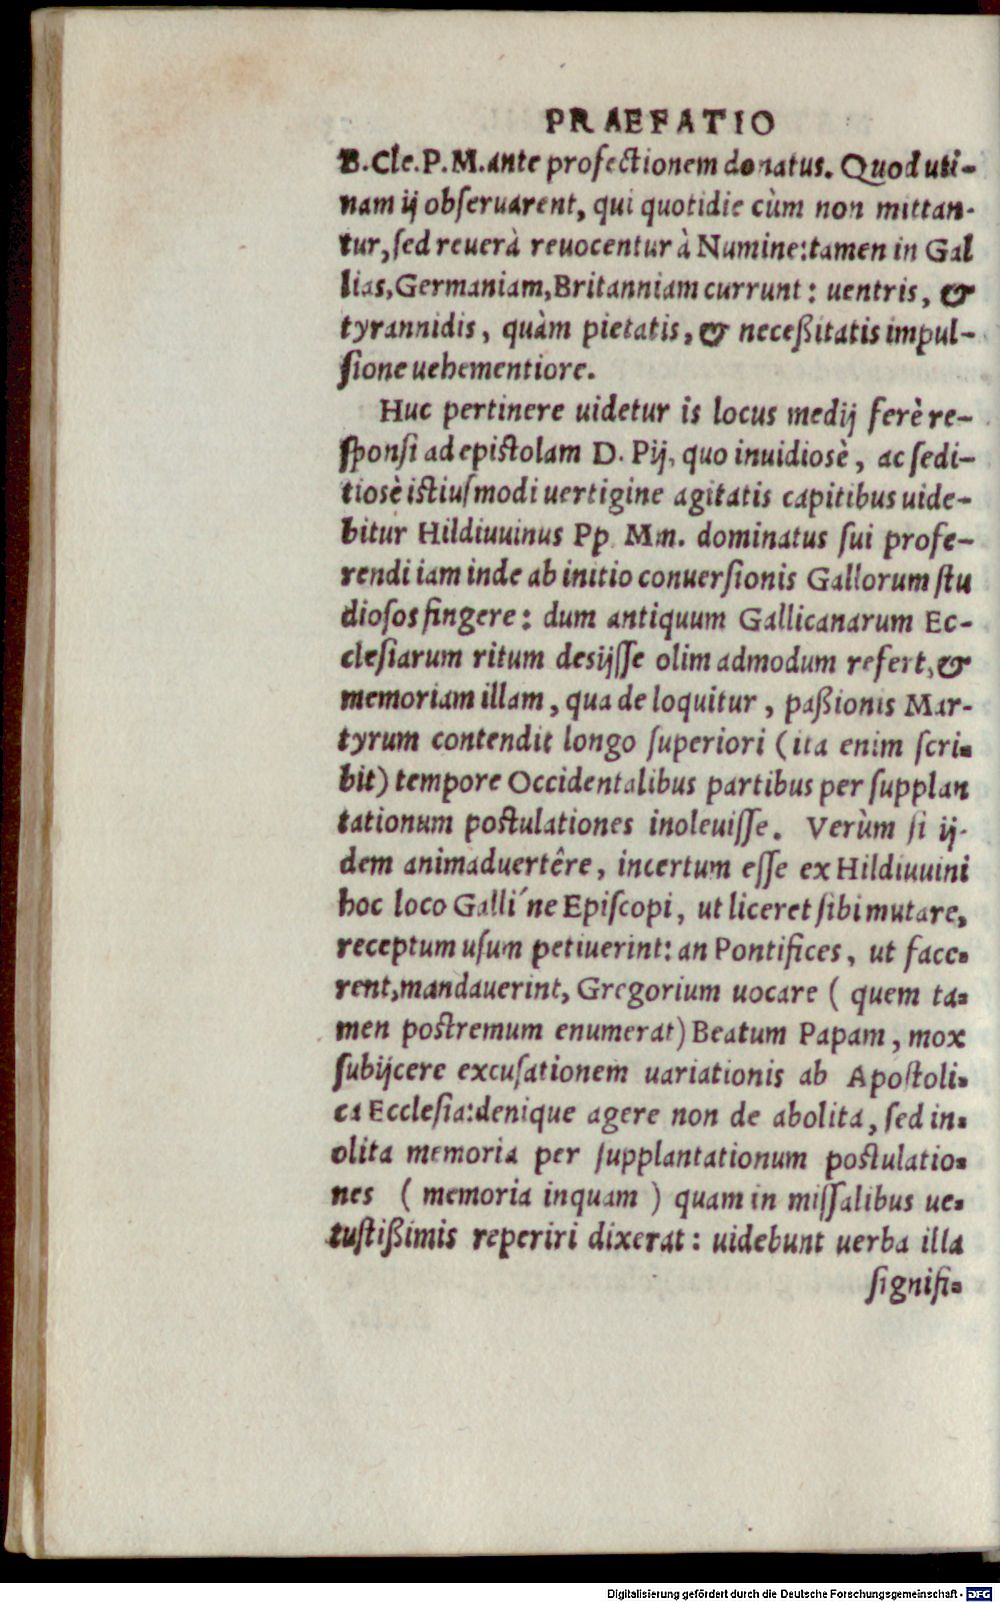 PRAEFATIO
B. Cle. P. M. ante profectionem donatus. Quod uti-
nam ij obſeruarent, qui quotidie cùm non mittan-
tur, ſed reuerà reuocentur à Numine: tamen in Gal
lias, Germaniam, Britanniam currunt: uentris, &
tyrannidis, quàm pietatis, & neceßitatis impul-
ſione uehementiore.
Huc pertinere uidetur is locus medij ferè re-
ſponſi ad epistolam D. Pij, quo inuidiosè, ac ſedi-
tiosè istiuſmodi uertigine agitatis capitibus uide-
bitur Hildiuuinus Pp. Mm. dominatus ſui profe-
rendi iam inde ab initio conuerſionis Gallorum ſtu
dioſos fingere: dum antiquum Gallicanarum Ec-
cleſiarum ritum desijſſe olim admodum refert, &
memoriam illam, qua de loquitur, paßionis Mar-
tyrum contendit longo ſuperiori (ita enim ſcri-
bit) tempore Occidentalibus partibus per ſupplan
tationum poſtulationes inoleuiſſe. Verùm ſi ij-
dem animaduertêre, incertum eſſe ex Hildiuuini
hoc loco Galli ́ne Epiſcopi, ut liceret ſibi mutare,
receptum uſum petiuerint: an Pontifices, ut face-
rent, mandauerint, Gregorium uocare ( quem ta-
men poſtremum enumerat) Beatum Papam, mox
ſubijcere excuſationem uariationis ab Apoſtoli-
ca Eccleſia: denique agere non de abolita, ſed in-
olita memoria per ſupplantationum poſtulatio-
nes ( memoria inquam ) quam in miſſalibus ue-
tuſtißimis reperiri dixerat: uidebunt uerba illa
ſignifi-
Digitalisierung gefördert durch die Deutsche Forschungsgemeinschaft - DFG